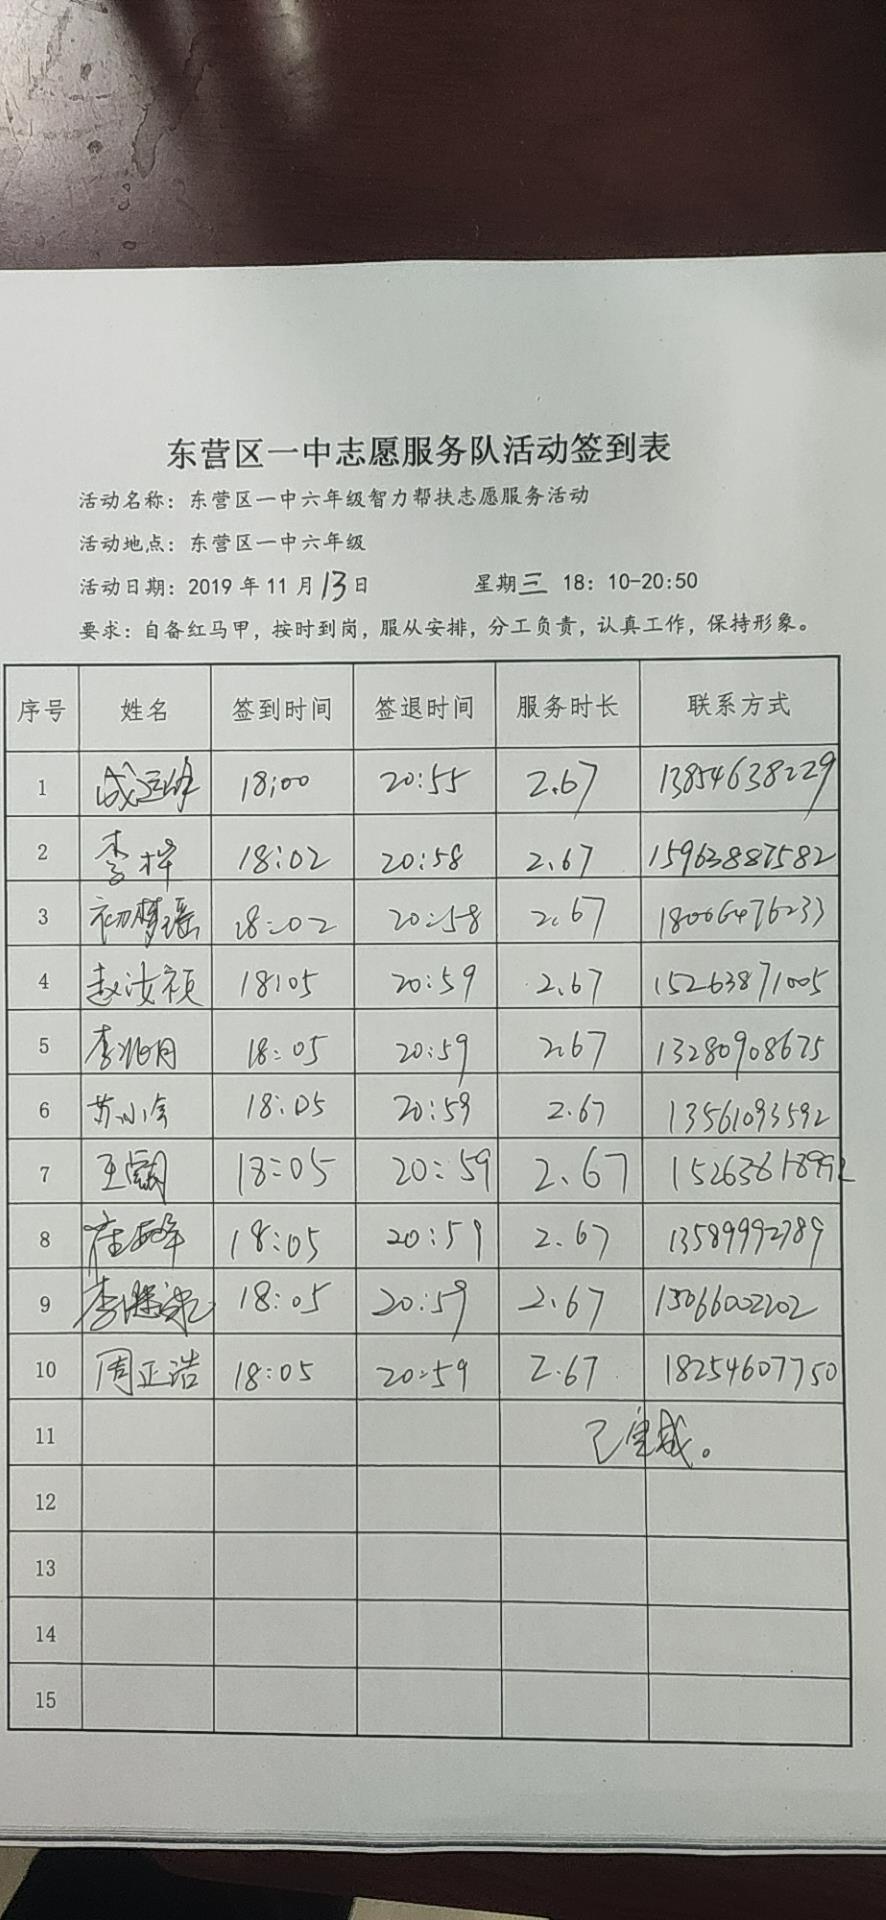 东营区一中志愿服务队活动签到表
活动名称：东营区一中六年级智力帮扶志愿服务活动
活动地点：东营区一中六年级
活动日期：2019 年 11 月 13 日 星期三 18：10-20:50
要求：自备红马甲，按时到岗，服从安排，分工负责，认真工作，保持形象。
序号 姓名 签到时间 签退时间 服务时长 联系方式
1 18:00 20:55 2.67 13854638229
2 李梓 18:02 20:58 2.67 15963887582
3 初梦瑶 18:02 20:58 2.67 18006476233
4 赵汝祯 18:05 20:59 2.67 15263871005
5 李兆月 18:05 20:59 2.67 13280908675
6 苏小会 18:05 20:59 2.67 13561093592
7 王 18:05 20:59 2.67
8 崔 18:05 20:59 2.67 13589992789
9 李 18:05 20:59 2.67 13066002202
10 周正浩 18:05 20:59 2.67 18254607750
11 已完成。
12
13
14
15